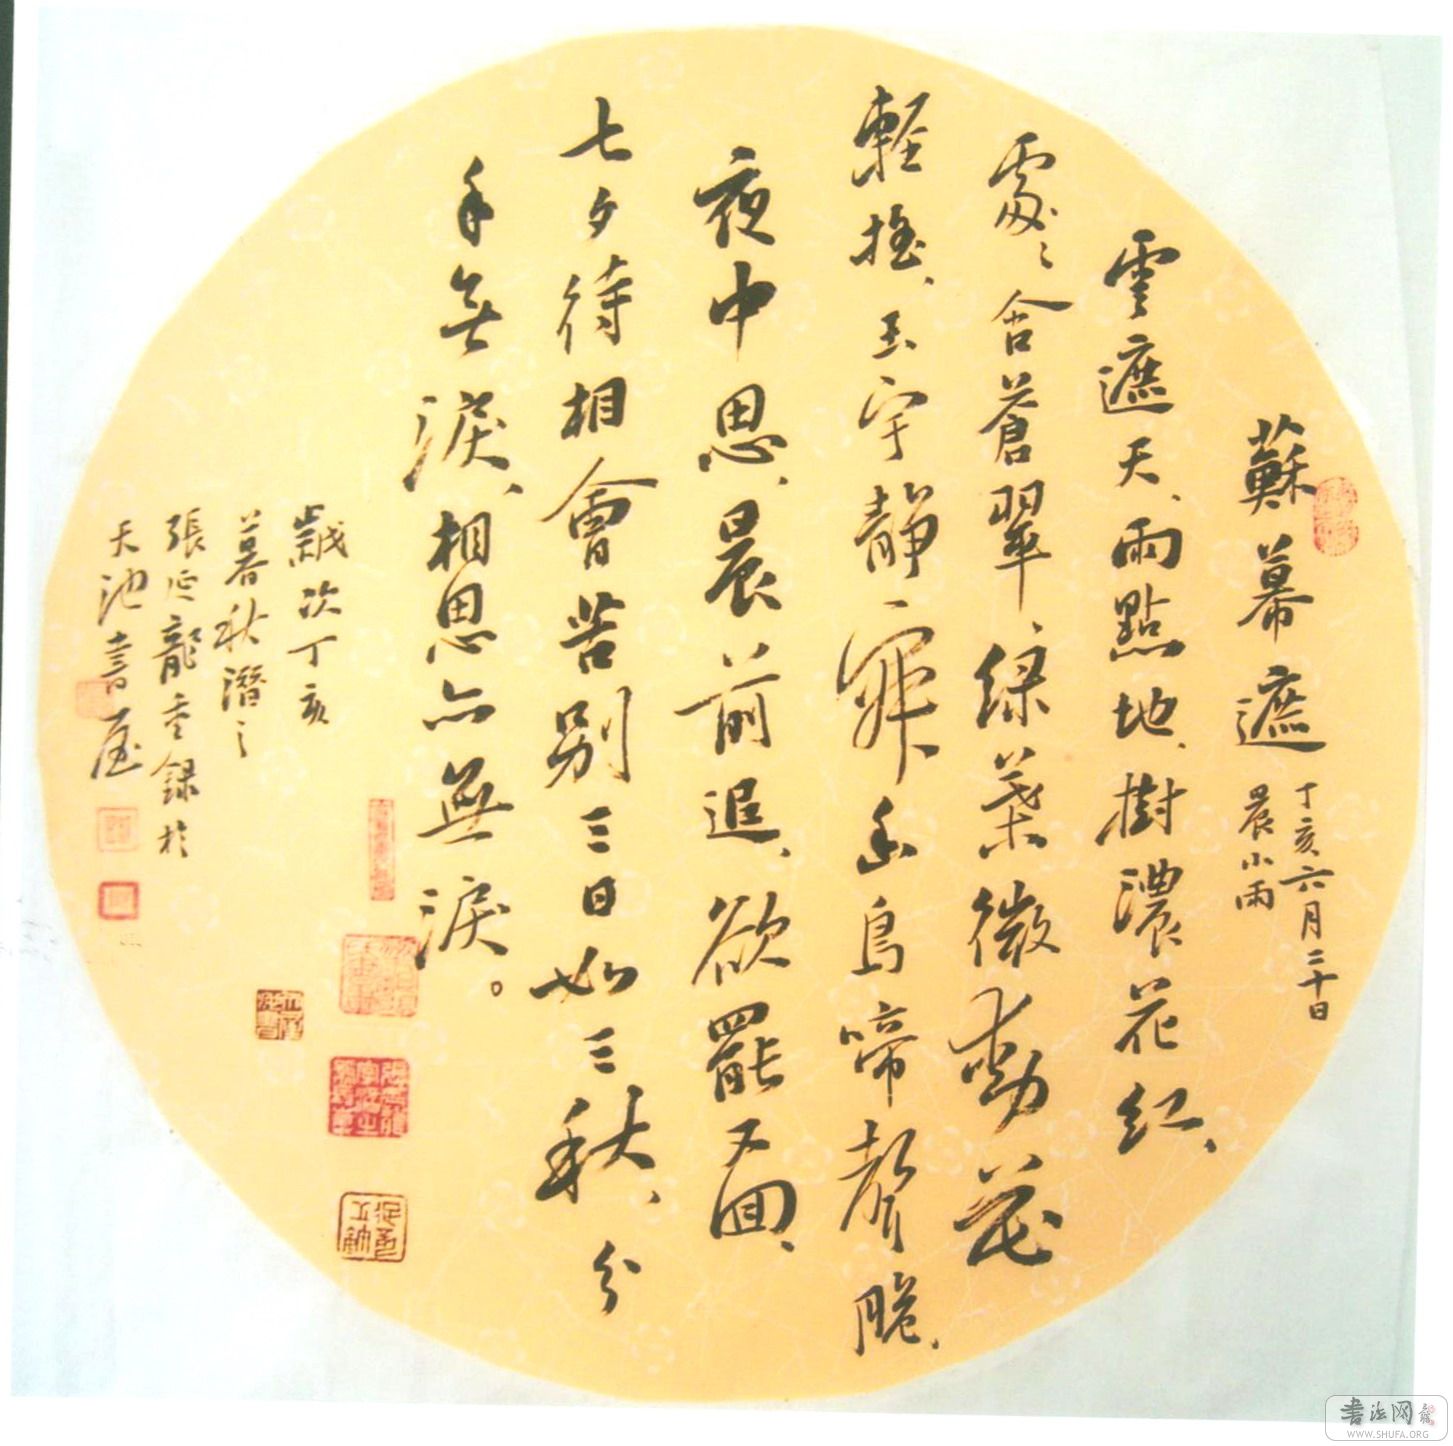 蘇幕遮
丁亥六月二十日
晨小雨
雲遮天、雨點地、樹濃花紅、
處〻含蒼翠、綠葉微動花
輕搖、玉宇靜寂鳥啼聲脆、
夜中思、晨前追、欲罷又面、
七夕待相會苦別三日如三秋、分
手無淚、相思亦無淚。
歲次丁亥
暮秋潛之
張延龍重錄於
天池書屋
書法网
WWW.SHUFA.ORG